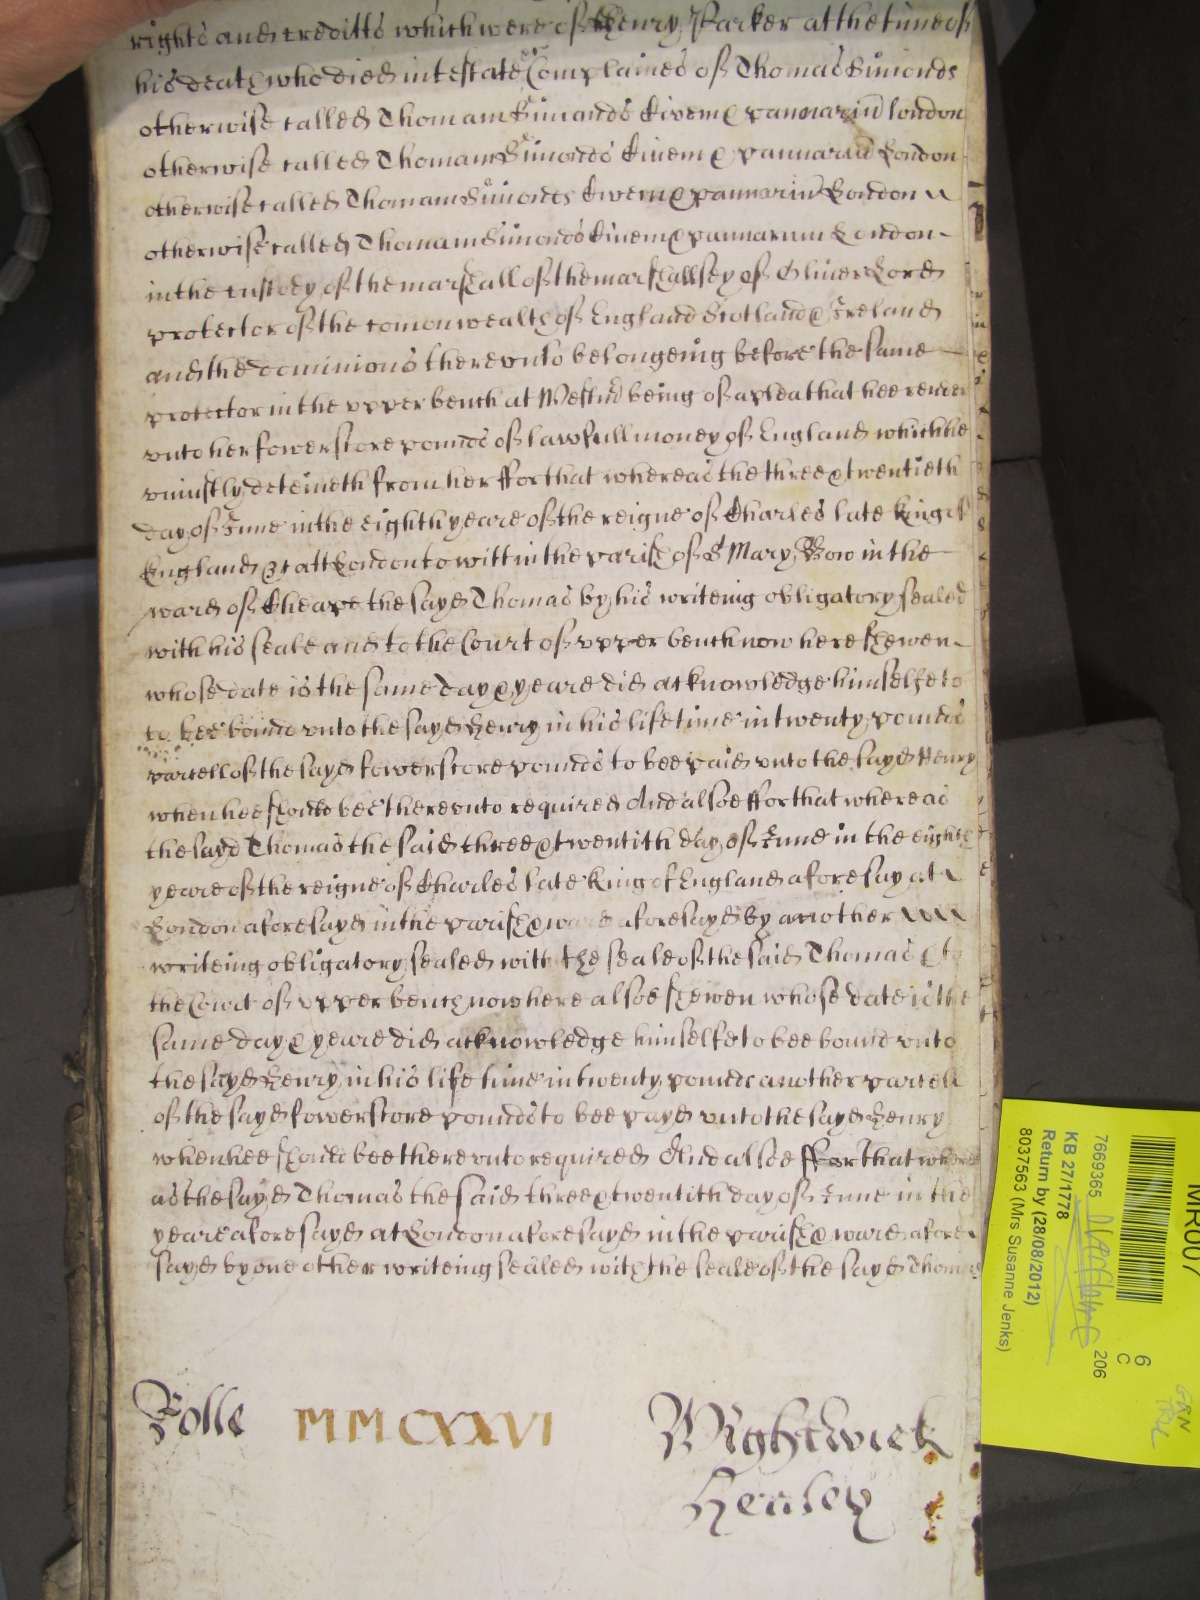 rights and creditts which were of Henry Parker at the time of
his death who died intestate Complaines of Thomas Simonds
otherwise called Thomam Simonds Civem & pannariu London
otherwise called Thomam Simonds Civem & pannariu London
otherwise called Thomam Simondes Civem & pannariu London
otherwise called Thomam Simonds Civem & pannarium London
in the custody of the marshall of the marshallsey of Oliver Lord
protector of the comonwealth of England Scotland & Ireland
and the dominions thereunto belongeing before the same
protector in the upper bench at Westm being of a plea that hee render
unto her fowerscore pounds of lawfull money of England which he
uniustly deteineth from her ffor that whereas the three & twentieth
day of June in the eighth yeare of the reigne of Charles late king of
England &c att London to witt in the parish of St Mary Bow in the
ward of Cheape the sayd Thomas by his writeing obligatory sealed
with his seale and to the Court of upper bench now here shewen
whose date is the same day & yeare did acknowledge himselfe to
to bee bound unto the sayd Henry in his life time in twenty pounds
parcell of the sayd fowerscore pounds to bee paid unto the sayd Henry
when hee should bee thereunto required And alsoe ffor that whereas
the sayd Thomas the said three & twentith day of June in the eighth
yeare of the reigne of Charles late King of England aforesay at
London aforesayd in the parish & ward aforesayd by another
writeing obligatory sealed with the seale of the said Thomas & to
the Court of upper bench now here alsoe shewen whose date is the
same day & yeare did acknowledge himselfe to bee bound unto
the sayd Henry in his life time in twenty pounds another parcell
of the sayd fowerscore pounds to bee payd unto the sayd Henry
when hee should bee thereunto required And alsoe ffor that where
as the sayd Thomas the said three & twentith day of June in the
yeare aforesayd at London aforesayd in the parish & ward afore
sayd by one other writeing sealed with the seale of the sayd Thomas
Rolle MMCXXVI Wightwick
Henley
MR007
6
C
206
7669365
KB 27/1778
Return by (28/08/2012)
8037563 (Mrs Susanne Jenks)